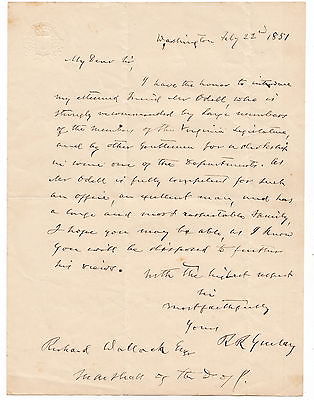 Washington Feby 22nd 1851
My Dear Sir,
I have the honor to introduce
my esteemed friend Mr Odell, who is
strongly recommended by large numbers
of the members of the Virginia Legislature,
and by other Gentlemen for a clerkship
in some one of the Departments. As
Mr Odell is fully competent for such
an office, an excellent man, and has
a large and most respectable family,
I hope you may be able, as I know
you will be disposed to further
his views.
With the highest respect
Sir
most faithfully
Yours
R R Gurley
Richard Wallach Esqr
Marshall of the D of C.